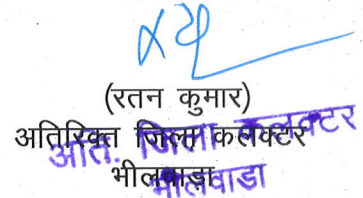 (रतन कुमार)
अतिरिक्त जिला कलक्टर
भीलवाड़ा
अति. जिला कलक्टर
भीलवाडा